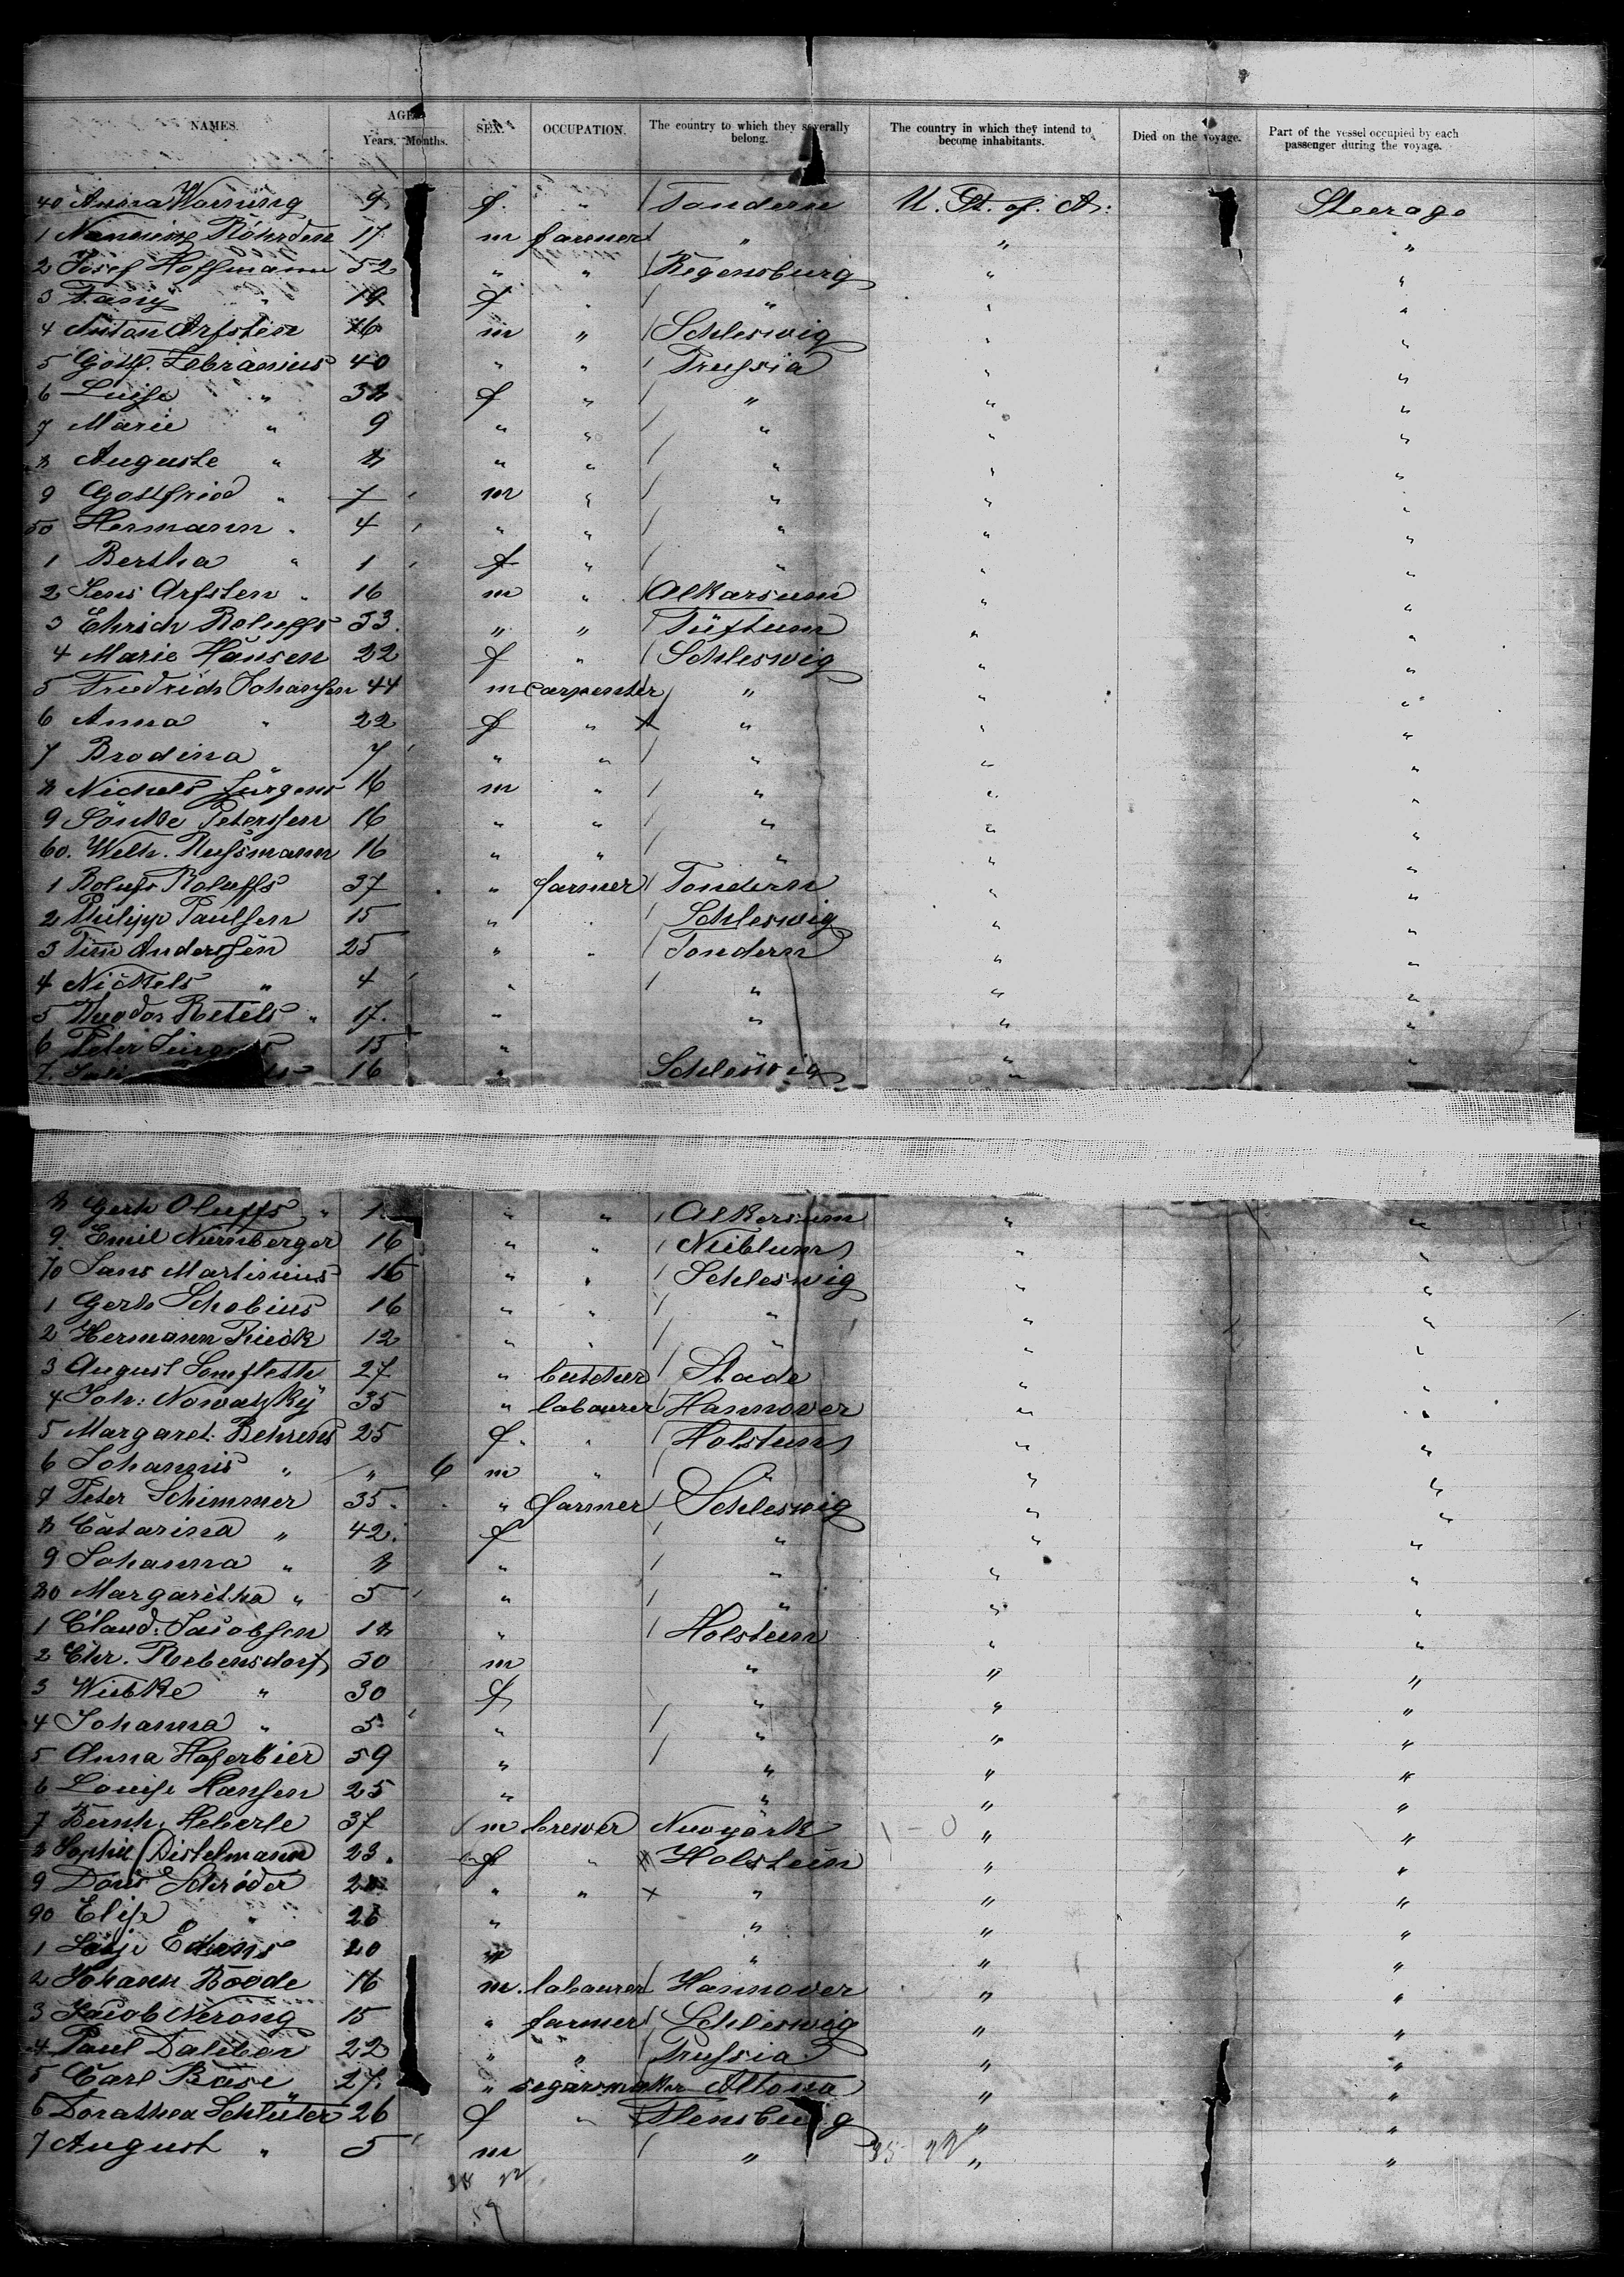 NAMES. AGE Years. Months. SEX. OCCUPATION. The country to which they severally belong. The country in which they intend to become inhabitants. Died on the voyage. Part of the vessel occupied by each passenger during the voyage.
40 Anna 9 f. " Tondern U. St. of. A. Steerage
1 17 m farmer " " "
2 Josef Hoffmann 52 " " Regensburg " "
3 Fany " 19 f " " " "
4 Anton Arfsten 16 m " Schleswig " "
5 Gottf. Zebranius 40 " " Prussia " "
6 Luise " 38 f " " " "
7 Marie " 9 " " " " "
8 Auguste " 8 " " " " "
9 Gottfried " 7 m " " " "
50 Hermann " 4 " " " " "
1 Bertha " 1 f " " " "
2 Jens Arfsten " 16 m " Alkarsum " "
3 Ehrich Roluffs 33 " " Tüftum " "
4 Marie Hansen 22 f " Schleswig " "
5 Friedrich Johanssen 44 m carpenter " " "
6 Anna " 22 f " " " "
7 Brodina " 7 " " " " "
8 Nichels Jürgens 16 m " " " "
9 Sönke Petersen 16 " " " " "
60. Welh. Russmann 16 " " " " "
1 Rolufs Roluffs 37 " farmer Tondern " "
2 Philipp Paulsen 15 " " Schleswig " "
3 Anderssen 25 " " Tondern " "
4 Nickels " 4 " " " "
5 Theodor Retels " 17. " " " "
6 Peter 15 "
7. 16 " Schleswig " "
8 Gerh Oluffs " 1 " " Alkersum " "
9. Emil Nürnberger 16 " " Nieblum " "
70 Jans Martinius 16 " " Schleswig " "
1 Gerh Schobius 16 " " " " "
2 Hermann Rieck 12 " " " " "
3 August Somfleth 27 " butcher Stade " "
4 Joh: Nowatzky 35 " labourer Hannover " "
5 Margaret. Behrens 25 f. " Holstein " "
6 Johannis " " 6 m " " "
7 Peter Schimmer 35. " farmer Schleswig " "
8 Catarina " 42. f " " "
9 Johanna " 8 " " " "
80 Margaretha " 5 " " " "
1 Claud: Jacobsen 18 " Holstein " "
2 Chr. Rebensdorf 30 m " " "
3 Wiebke " 30 f " " "
4 Johanna " 5 " " " "
5 Anna Haferbier 59 " " " "
6 Louise Hansen 25 " " " "
7 Bernh. Heberle 37 m brewer Newyork 1 - 0 " "
8 Sophie Distelmann 23. f " Holstein " "
9 Doris Schröder " " " " "
90 Elise " 26 " " " "
1 20 m " " "
2 Johann Boode 16 m. labourer Hannover " "
3 Jacob Nerong 15 " farmer Schleswig " "
4 Paul Dalibor 22 " " Prussia " "
5 Carl Base 27. " segarsmaker Altona " "
6 Dorathea Schlüter 26 f " Flensburg " "
7 August " 5 m " 35 22 " "
38 22